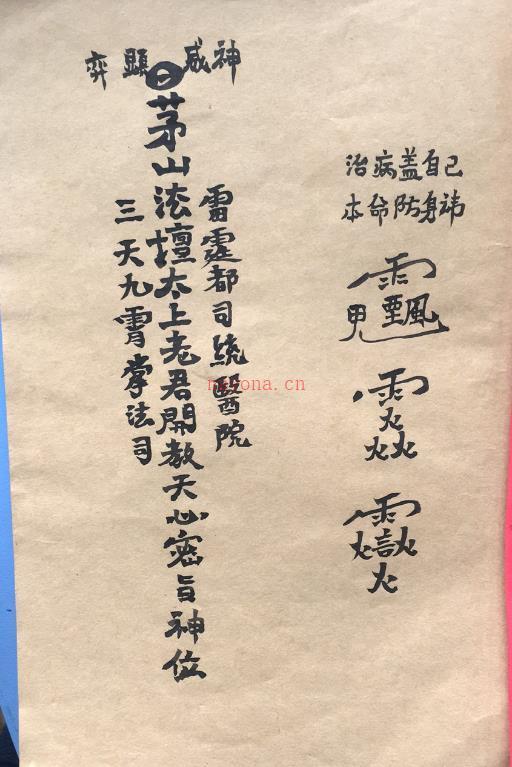 治病蓋自己
本命防身諱
神威顯奕
雷霆都司統醫院
茅山法壇太上老君開教天心密旨神位
三天九霄掌法司